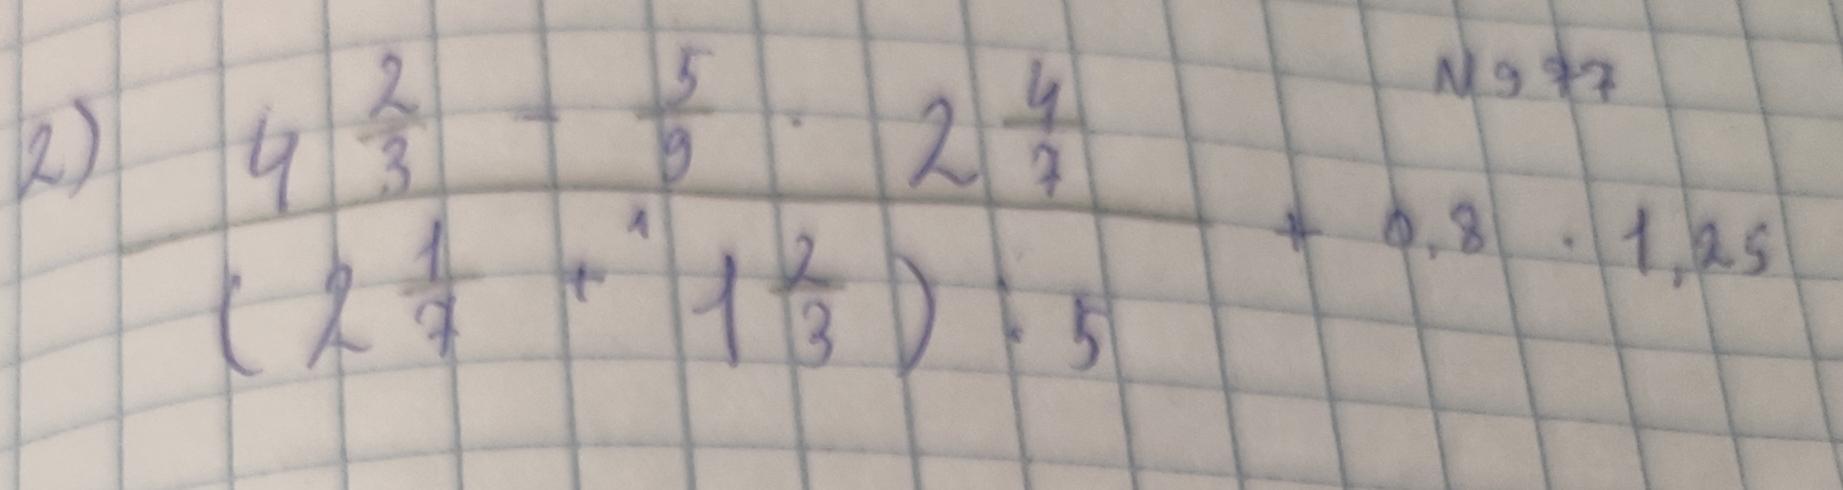 N977
2) 4 2/3 - 5/9 · 2 4/7
(2 1/7 + 1 2/3) : 5 + 0,8 · 1,25